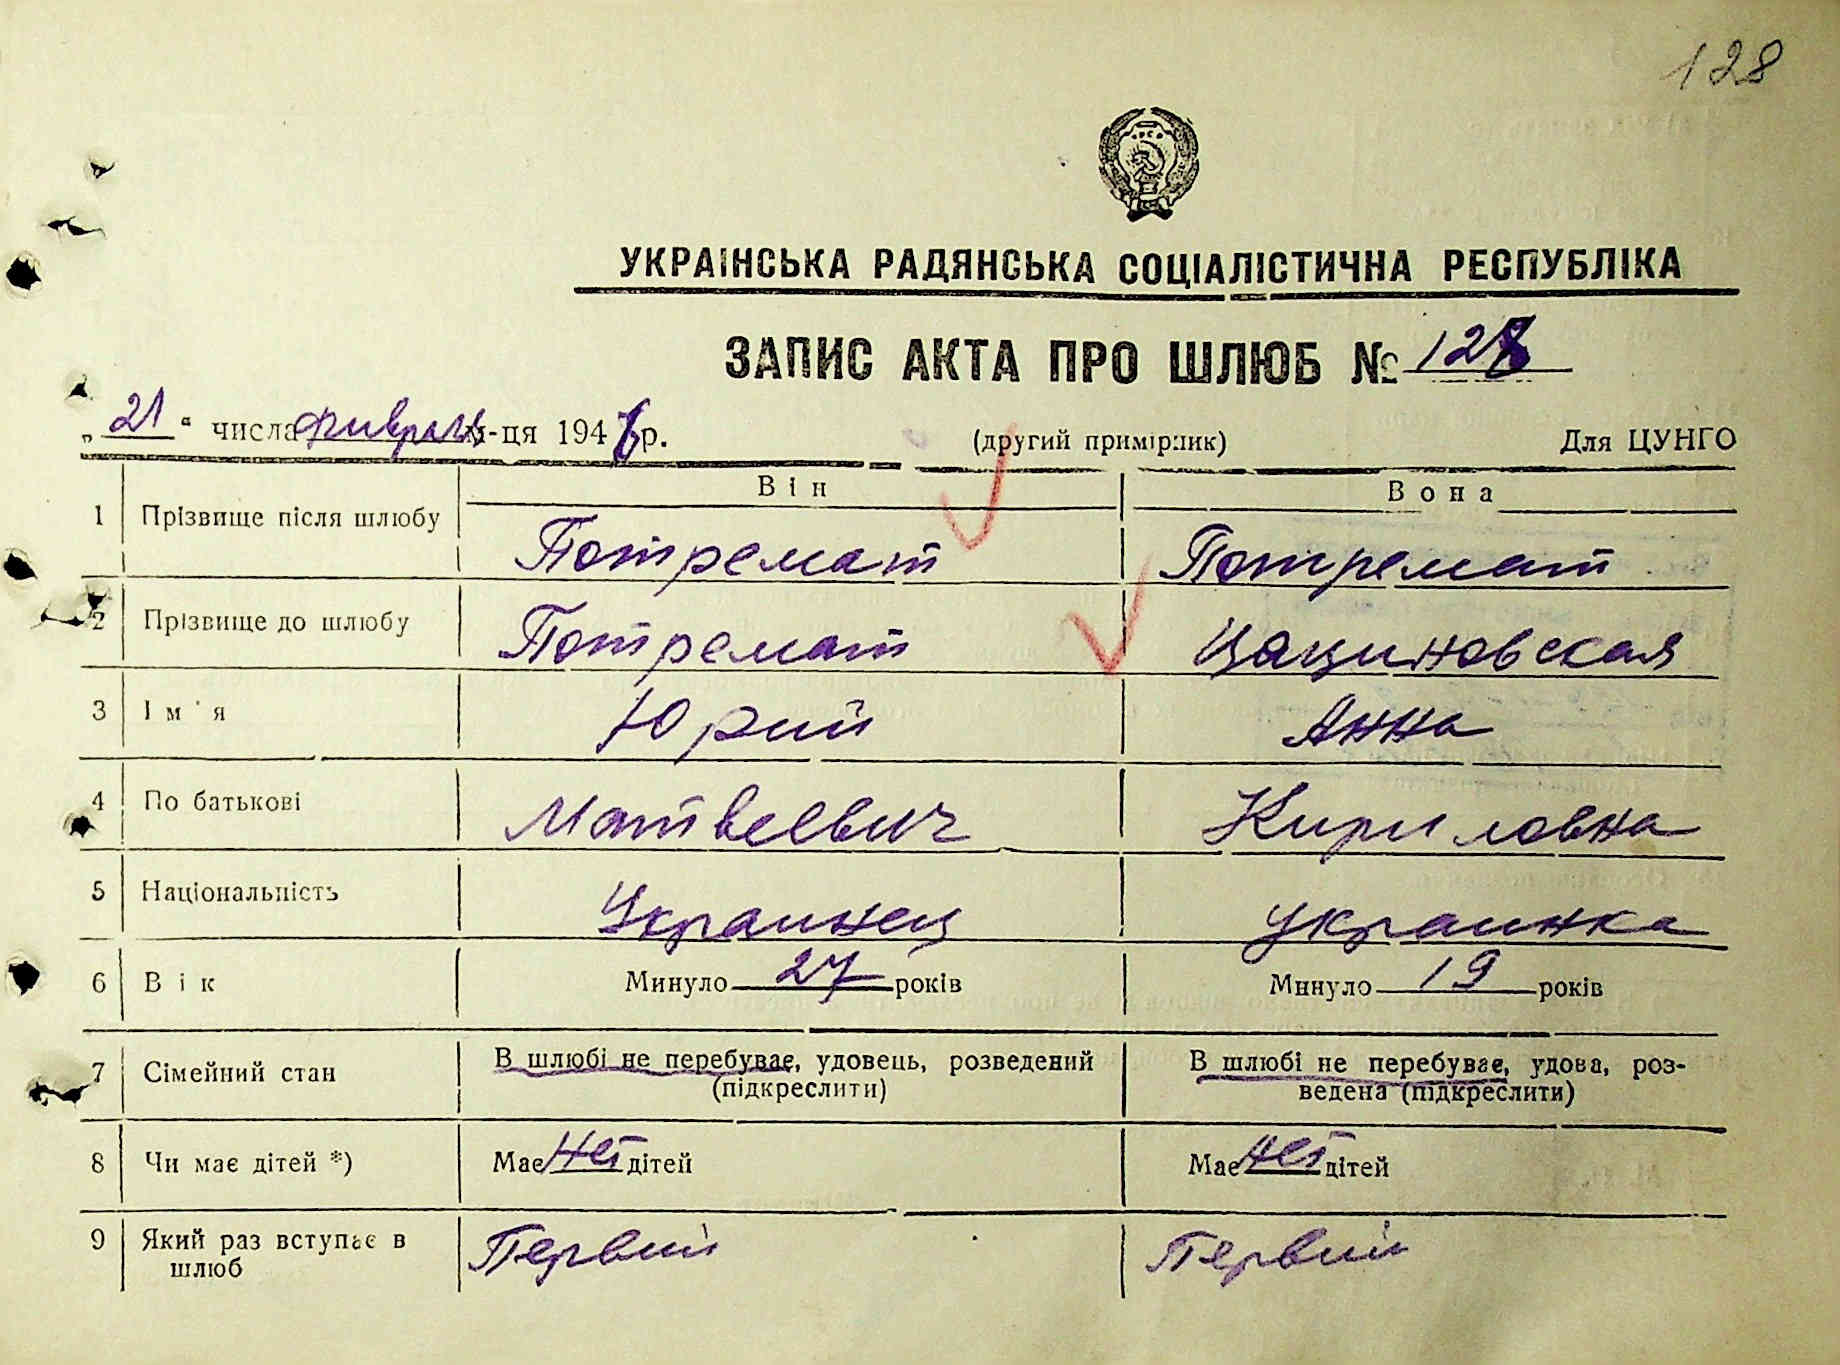 128
УКРАЇНСЬКА РАДЯНСЬКА СОЦІАЛІСТИЧНА РЕСПУБЛІКА
ЗАПИС АКТА ПРО ШЛЮБ № 128
„21“ числа м-ця 194 р. (другий примірник) Для ЦУНГО
Він Вона
1 Прізвище після шлюбу Потремат Потремат
2 Прізвище до шлюбу Потремат Цациновская
3 Ім'я Юрий Анна
4 По батькові Матвеевич Кириловна
5 Національність Украинец украинка
6 Вік Минуло 27 років Минуло 19 років
7 Сімейний стан В шлюбі не перебуває, удовець, розведений В шлюбі не перебуває, удова, роз-
(підкреслити) ведена (підкреслити)
8 Чи має дітей *) Має нет дітей Має нет дітей
9 Який раз вступає в Первий Первий
шлюб